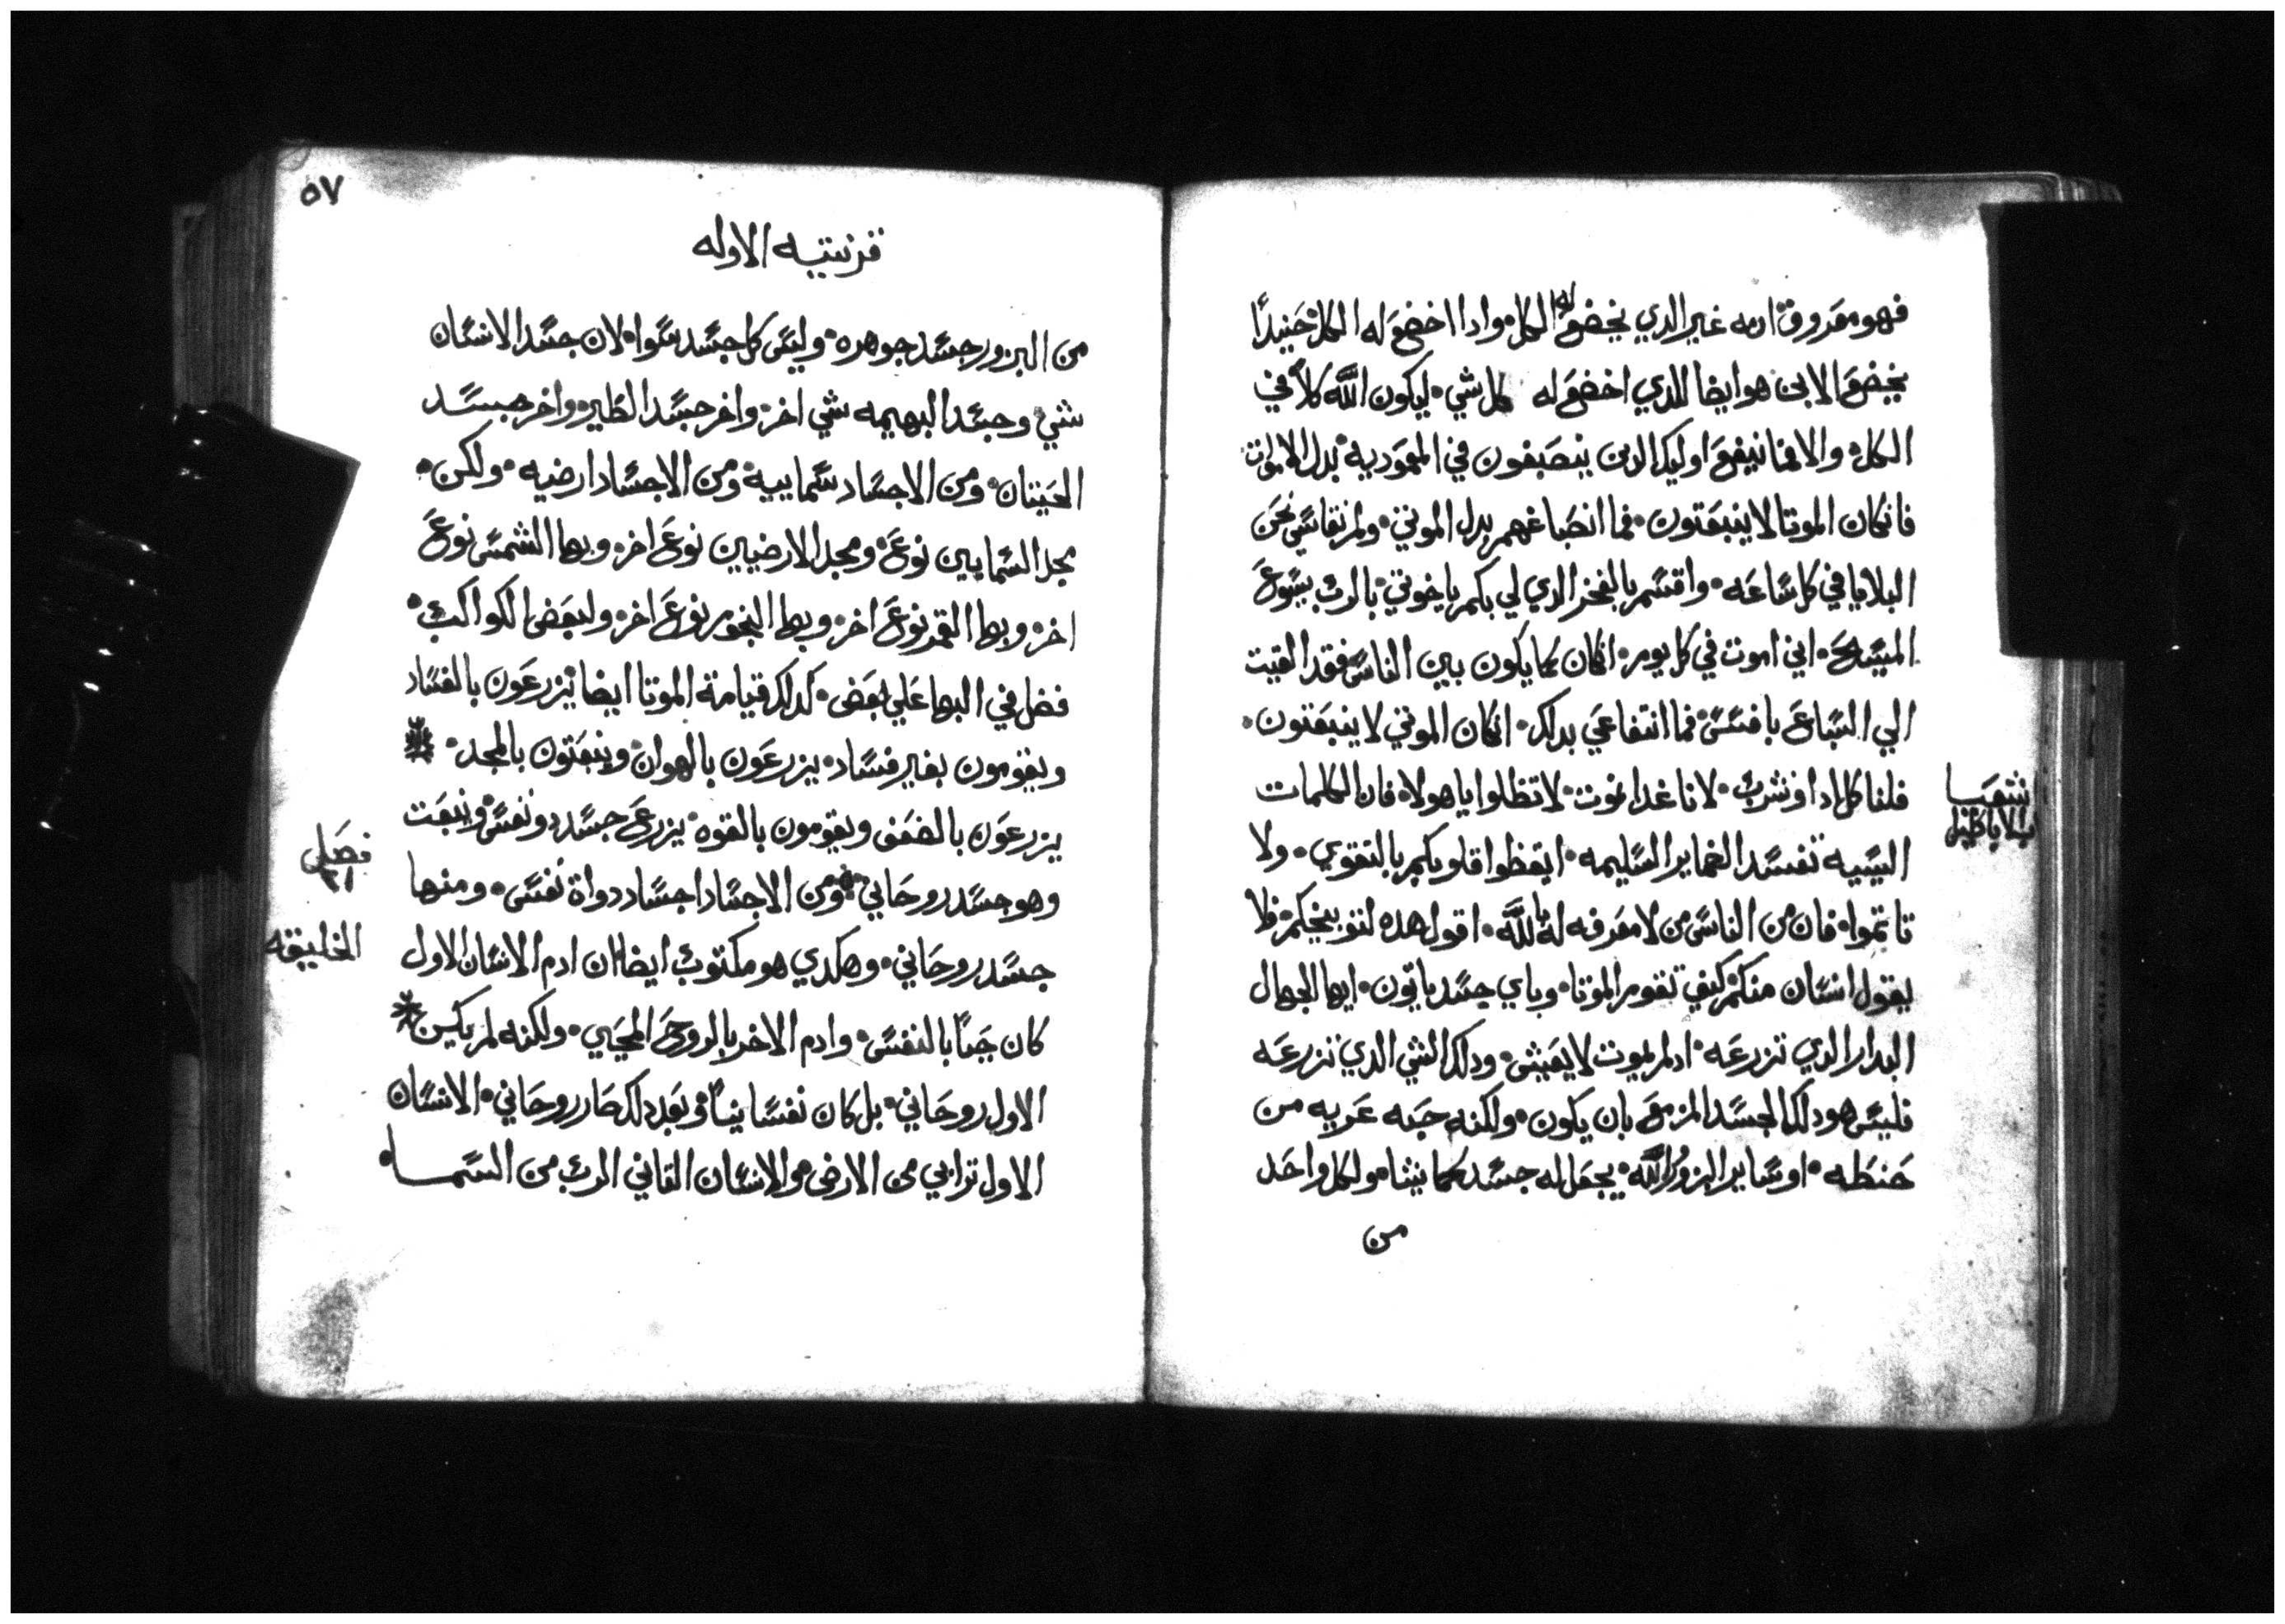 فهو معروف انه غير الذي يخضع له الكل۰ واداا اخضع له الكل۰ حنيدًا
يخضع الابن هو ايضا للدي اخضع له كل شي۰ ليكون الله كلاً في
الكل۰ والا فما ينفع اوليك الدين ينصبغون في المعمودية بدل الاموات۰
فانكان الموتا لا ينبعتون۰ فما انصباغهم بدل الموتي۰ ولم نقاسي نحن
البلايا في كل ساعه۰ واقسم بالفخر الدي لي بكم ياخوتي۰ بالرب يسوع
المسيح۰ اني اموت في كل يوم۰ انكان كما يكون بين الناس فقد القيت
الي السباع بافسس۰ فما انتفاعي بدلك۰ انكان الموتي لا ينبعتون۰
فلناكل ادا ونشرب۰ لانا غدا نموت۰ لا تظلوا ياهولا۰ فان الكلمات
السييه تفسد الضماير السليمه۰ ايقظوا قلوبكم بالتقوي۰ ولا
تاتموا۰ فان من الناس من لا معرفه له بالله۰ اقول هده لتوبيخكم۰ فلا
يقول انسان منكم۰ كيف تقوم الموتا۰ وباي جسد ياتون۰ ايها الجهال
البدار الدي تزرعه۰ ادلم يموت لا يعيش۰ ودلك الشي الدي تزرعه
فليس هو دلك الجسد المزمع بان يكون۰ ولكنه حبه عريه من
حنطه۰ او ساير البزور۰ الله۰ يجعل له جسد كما يشا۰ ولكل واحد
من
شعيا
بالاباطيل
٥٧
قرنتيه الاوله
من البزور جسد جوهره۰ وليس كل جسد سوا۰ لان جسد الانسان
شي۰ وجسد البهيمه شي اخر۰ واخر جسد الطير۰ واخر جسد
الحيتان۰ ومن الاجساد سماييه۰ ومن الاجساد ارضيه۰ ولكن۰
مجد السمايين نوع۰ ومجد الارضيين نوع اخر۰ وبها الشمس نوع
اخر۰ وبها القمر نوع اخر۰ وبها النجوم نوع اخر۰ ولبعض الكواكب۰
فضل في البها علي بعض۰ كدلك قيامة الموتا ايضا۰ يزرعون بالفساد
ويقومون بغير فساد۰ يزرعون بالهوان۰ وينبعتون بالمجد۰
يزرعون بالضعف ويقومون بالقوه۰ يزرع جسد دو نفس۰ وينبعت
وهو جسد روحاني۰ ومن الاجساد اجساد دواة نفس۰ ومنها
جسد روحاني۰ وهكدي هو مكتوب ايضا ان ادم الانسان الاول
كان حياً بالنفس۰ وادم الاخر بالروح المحيي۰ ولكنه لم يكن
الاول روحاني۰ بل كان نفسانياً۰ وبعد دلك صار روحاني۰ الانسان
الاول ترابي من الارض۰ والانسان التاني الرب من السما۰
فصل
٢١
الخليقه